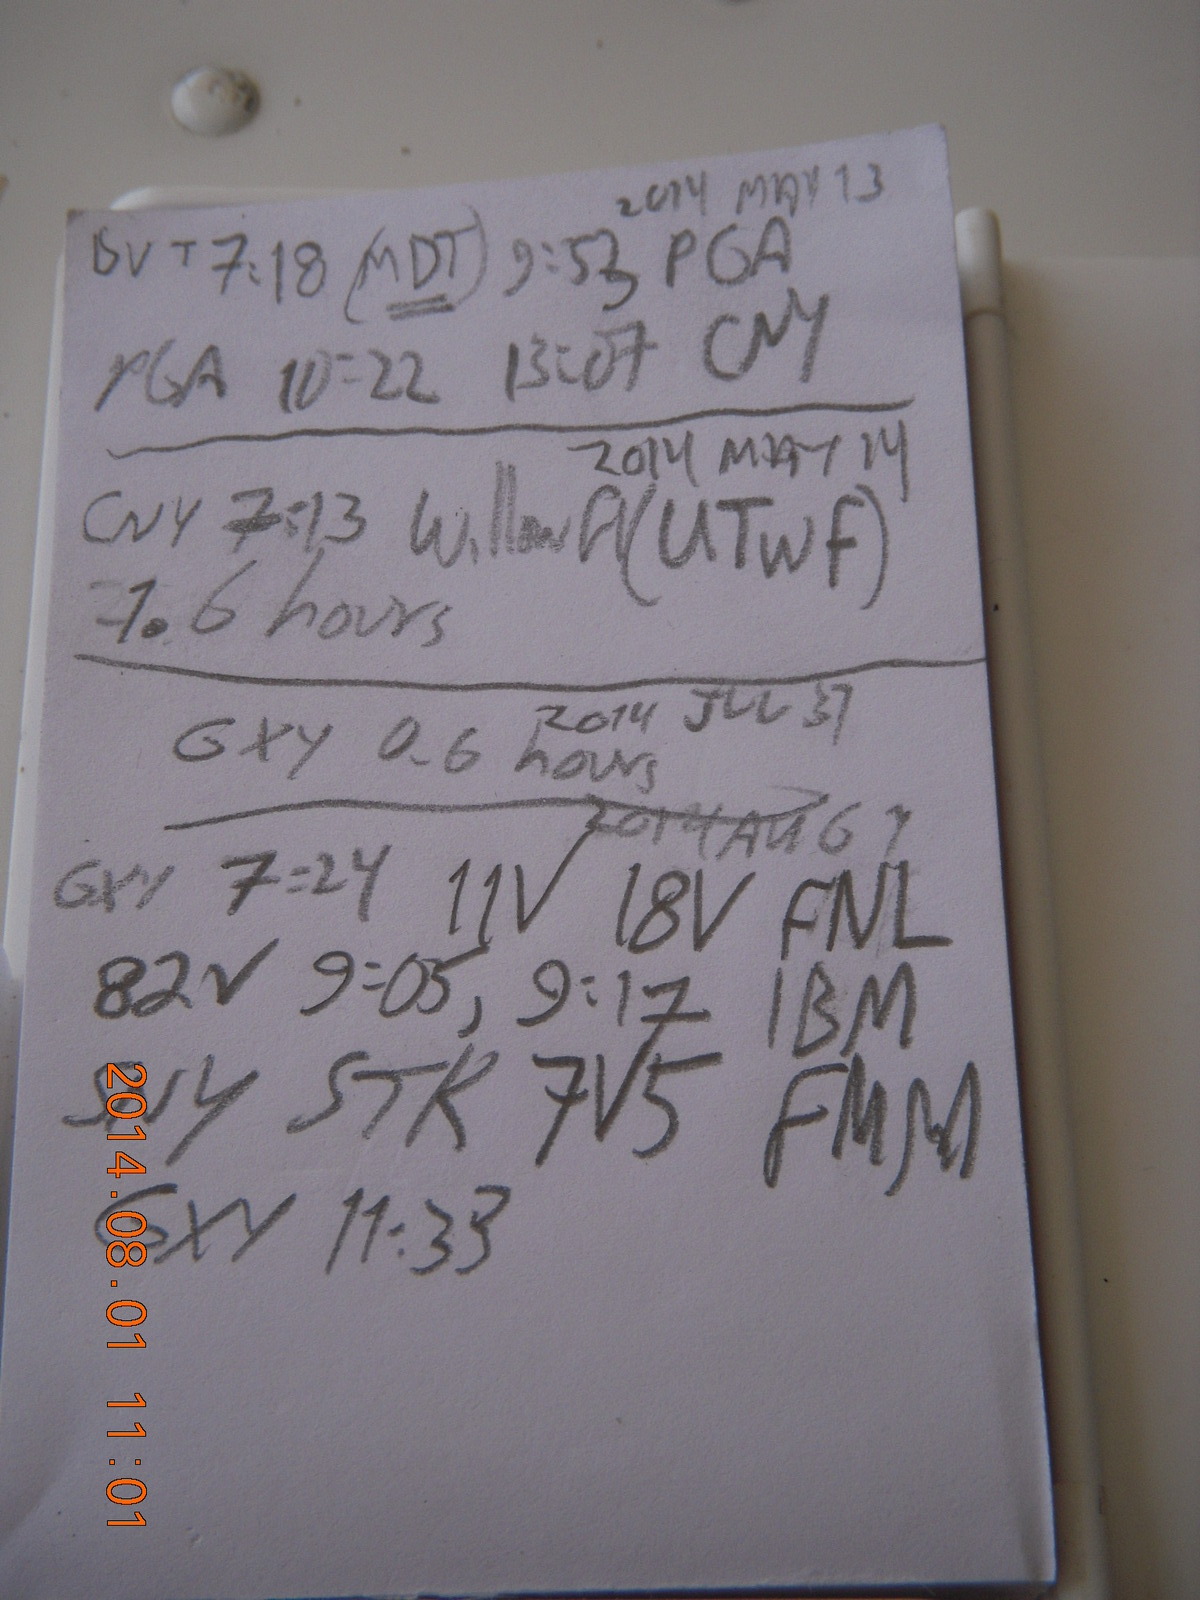 2014 MAY 13
BVT 7:18 (MDT) 9:53 PGA
PGA 10:22 13:07 CNY
2014 MAY 14
CNY 7:13 Willow Fl (UTWF)
7.6 hours
2014 JUL 31
GXY 0.6 hours
2014 AUG 1
GXY 7:24 11V 18V FNL
82V 9:05, 9:17 IBM
SNY STK 7V5 FMM
GXY 11:33
2014.08.01 11:01